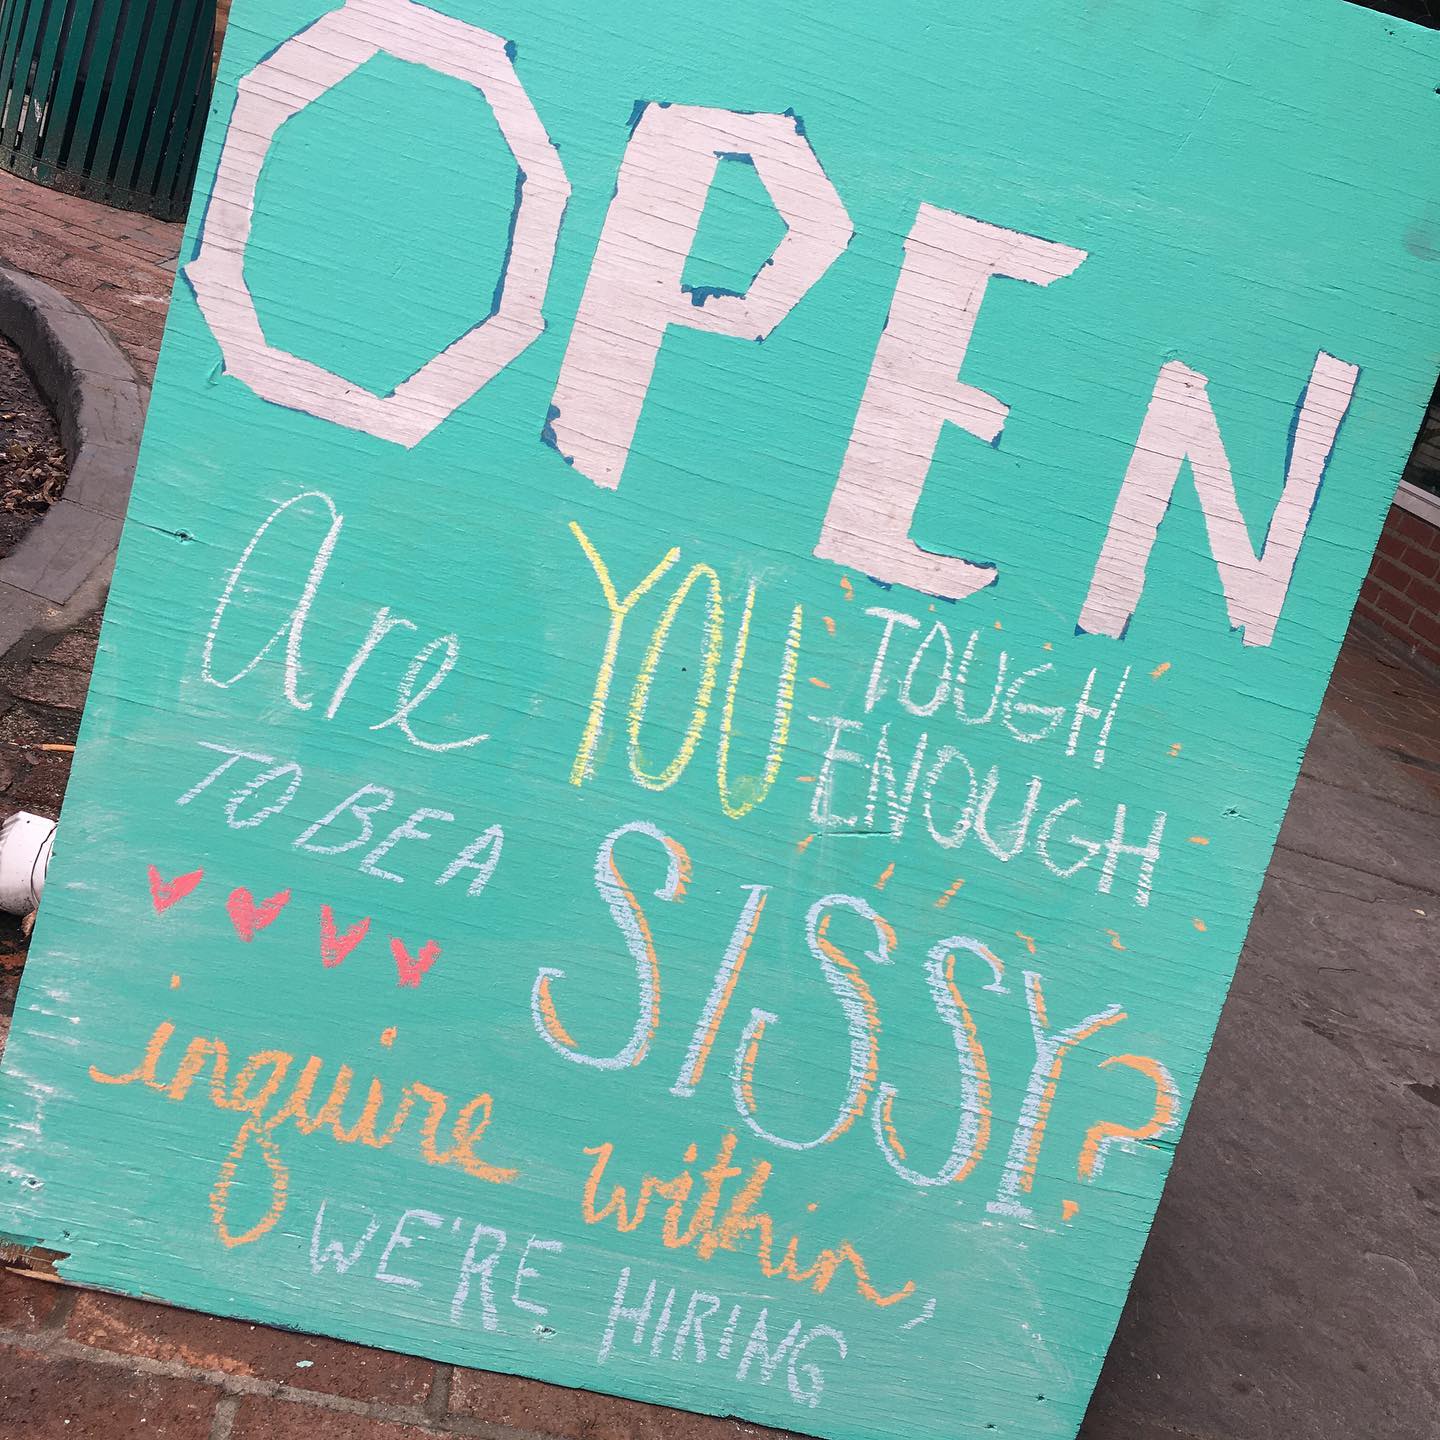 OPEN
Are YOU TOUGH
ENOUGH
TO BE A
SISSY?
inquire within,
WE'RE HIRING